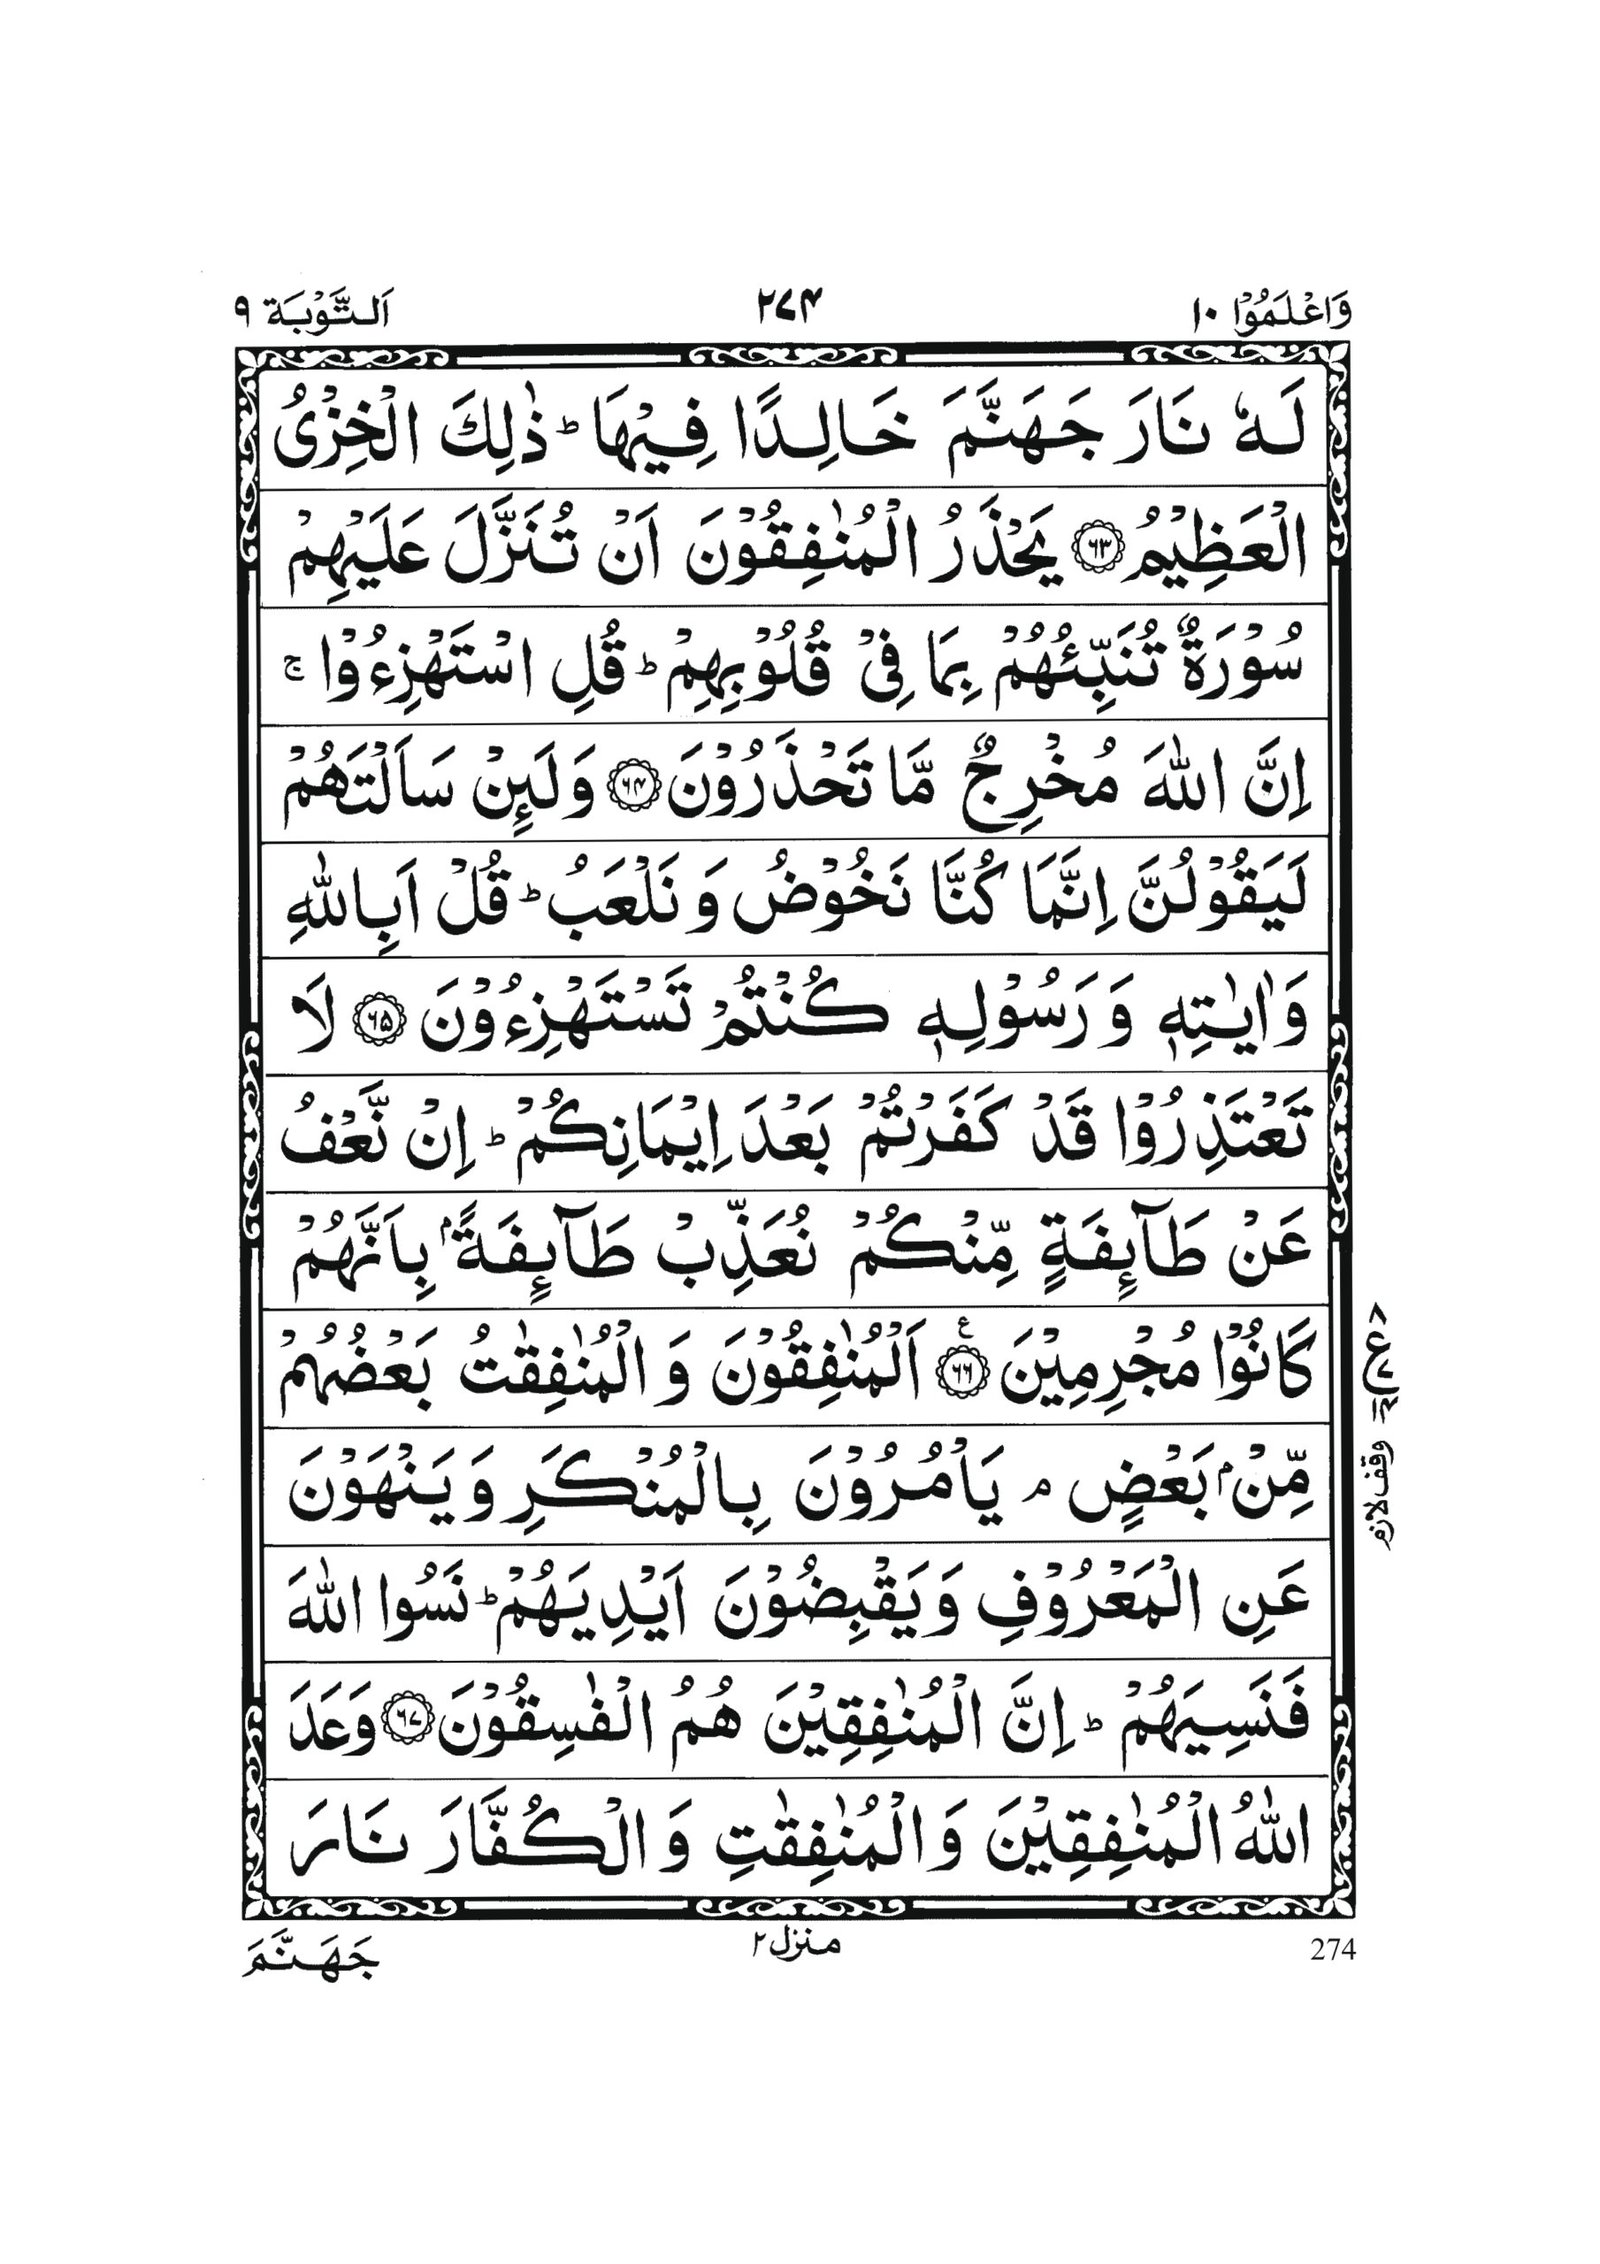 وَاعْلَمُوْۤا ١٠ ٢٧٤ اَلتَّوْبَة ٩
لَهٗ نَارَ جَهَنَّمَ خَالِدًا فِيْهَا ؕ ذٰلِكَ الْخِزْىُ
الْعَظِيْمُ ﴿٦٣﴾ يَحْذَرُ الْمُنٰفِقُوْنَ اَنْ تُنَزَّلَ عَلَيْهِمْ
سُوْرَةٌ تُنَبِّئُهُمْ بِمَا فِىْ قُلُوْبِهِمْ ؕ قُلِ اسْتَهْزِءُوْا ۚ
اِنَّ اللّٰهَ مُخْرِجٌ مَّا تَحْذَرُوْنَ ﴿٦٤﴾ وَلَئِنْ سَاَلْتَهُمْ
لَيَقُوْلُنَّ اِنَّمَا كُنَّا نَخُوْضُ وَ نَلْعَبُ ؕ قُلْ اَبِاللّٰهِ
وَاٰيٰتِهٖ وَ رَسُوْلِهٖ كُنْتُمْ تَسْتَهْزِءُوْنَ ﴿٦٥﴾ لَا
تَعْتَذِرُوْا قَدْ كَفَرْتُمْ بَعْدَ اِيْمَانِكُمْ ؕ اِنْ نَّعْفُ
عَنْ طَآئِفَةٍ مِّنْكُمْ نُعَذِّبْ طَآئِفَةًۢ بِاَنَّهُمْ
كَانُوْا مُجْرِمِيْنَ ﴿٦٦﴾ ع اَلْمُنٰفِقُوْنَ وَ الْمُنٰفِقٰتُ بَعْضُهُمْ
مِّنْۢ بَعْضٍ ۘ يَاْمُرُوْنَ بِالْمُنْكَرِ وَ يَنْهَوْنَ
عَنِ الْمَعْرُوْفِ وَ يَقْبِضُوْنَ اَيْدِيَهُمْ ؕ نَسُوا اللّٰهَ
فَنَسِيَهُمْ ؕ اِنَّ الْمُنٰفِقِيْنَ هُمُ الْفٰسِقُوْنَ ﴿٦٧﴾ وَعَدَ
اللّٰهُ الْمُنٰفِقِيْنَ وَ الْمُنٰفِقٰتِ وَ الْكُفَّارَ نَارَ
وقف لازم
274 منزل ٢ جَهَنَّمَ